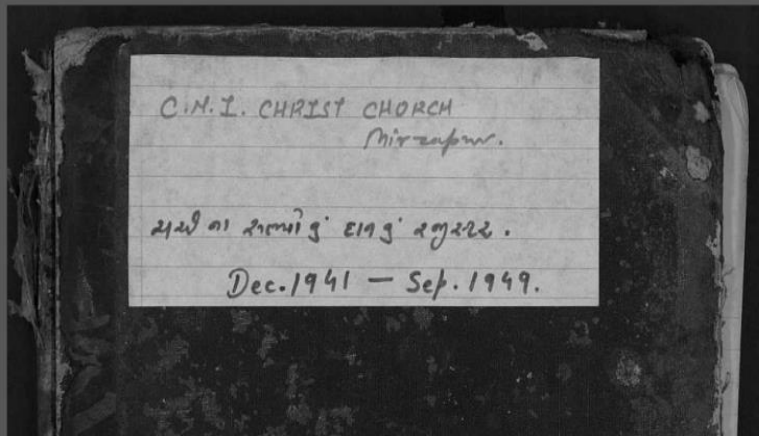 C.N.I. CHRIST CHURCH
Mirzapur.
ચર્ચ ના સભ્યોનું દાનનું રજીસ્ટર.
Dec. 1941 — Sep. 1949.